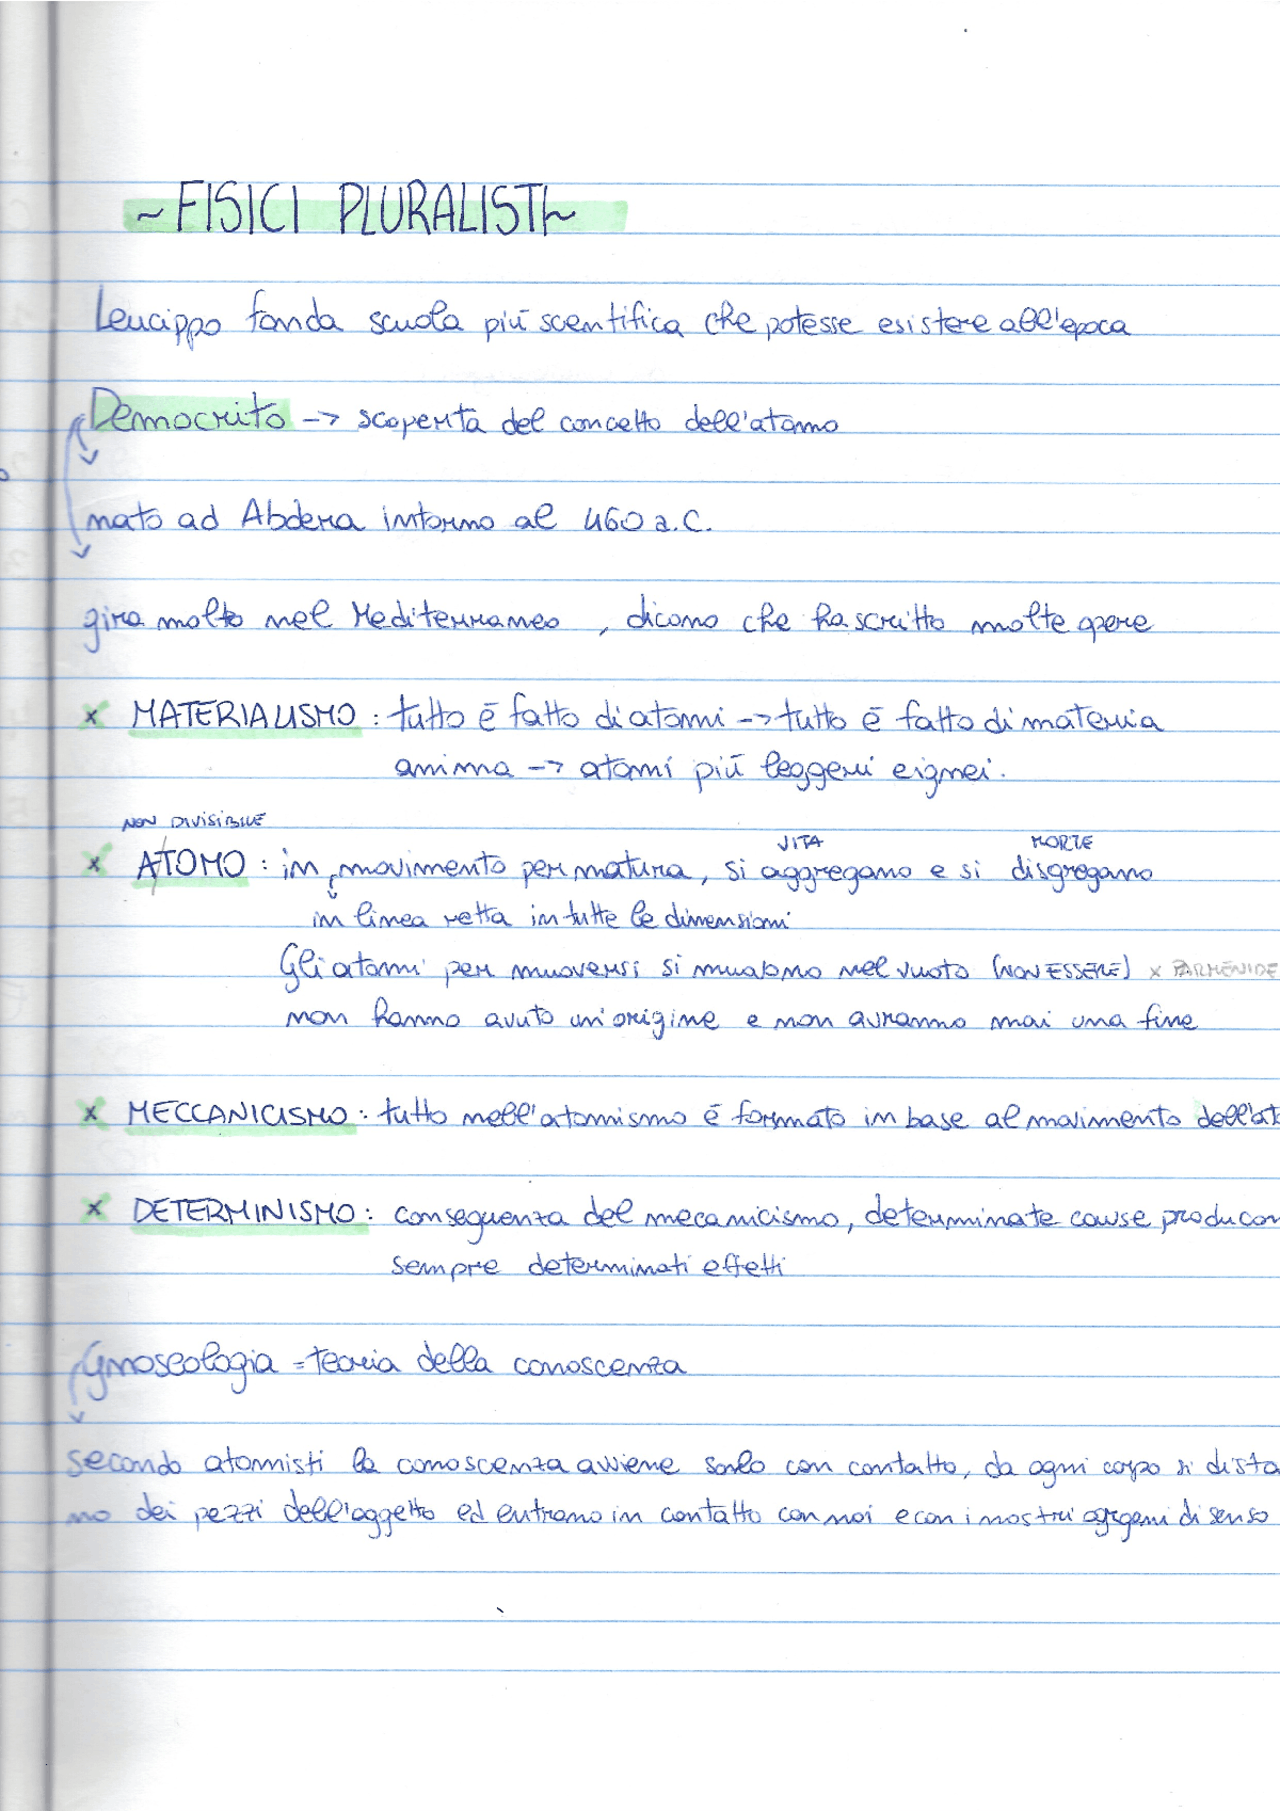 ~ FISICI PLURALISTI ~
Leucippo fonda scuola più scentifica che potesse esistere all'epoca
Democrito -> scoperta del concetto dell'atomo
nato ad Abdera intorno al 460 a.C.
gira molto nel Mediterraneo, dicono che ha scritto molte opere
x MATERIALISMO: tutto è fatto di atomi -> tutto è fatto di materia
anima -> atomi più leggeri e ignei.
NON DIVISIBILE
VITA MORTE
x ATOMO: in movimento per natura, si aggregano e si disgregano
in linea retta in tutte le dimensioni
Gli atomi per muoversi si muovono nel vuoto (NON ESSERE) x PARMENIDE
non hanno avuto un'origine e non avranno mai una fine
x MECCANICISMO: tutto nell'atomismo è formato in base al movimento dell'at
x DETERMINISMO: conseguenza del mecanicismo, determinate cause producon
sempre determinati effetti
Gnoseologia = teoria della conoscenza
secondo atomisti la conoscenza avviene solo con contatto, da ogni corpo si dista
no dei pezzi dell'oggetto ed entrano in contatto con noi e con i nostri organi di senso